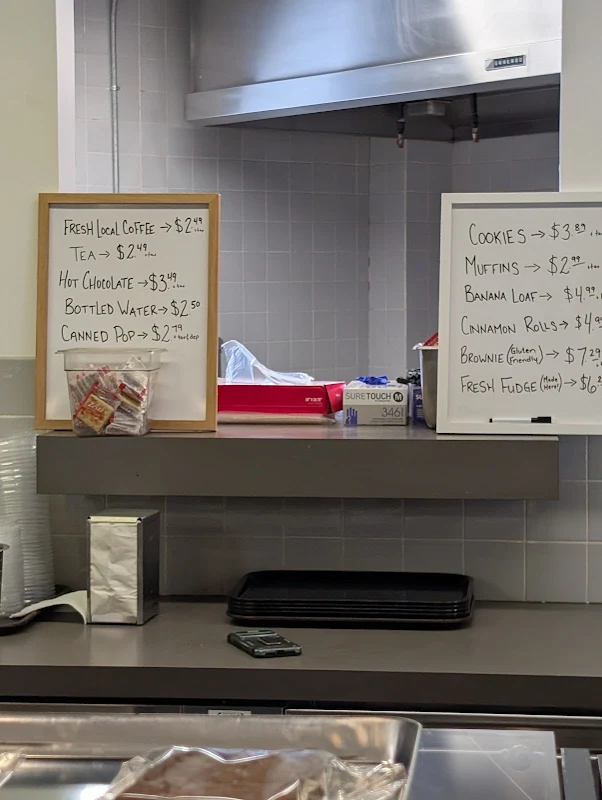 FRESH LOCAL COFFEE → $2.49 + tax
TEA → $2.49 + tax
HOT CHOCOLATE → $3.49 + tax
BOTTLED WATER → $2.50
CANNED POP → $2.79 + tax/dep
COOKIES → $3.89
MUFFINS → $2.99
BANANA LOAF → $4.99
CINNAMON ROLLS → $4.99
BROWNIE (Gluten friendly) → $7.29
FRESH FUDGE (Made Here!) → $6.2
SURETOUCH M
3461